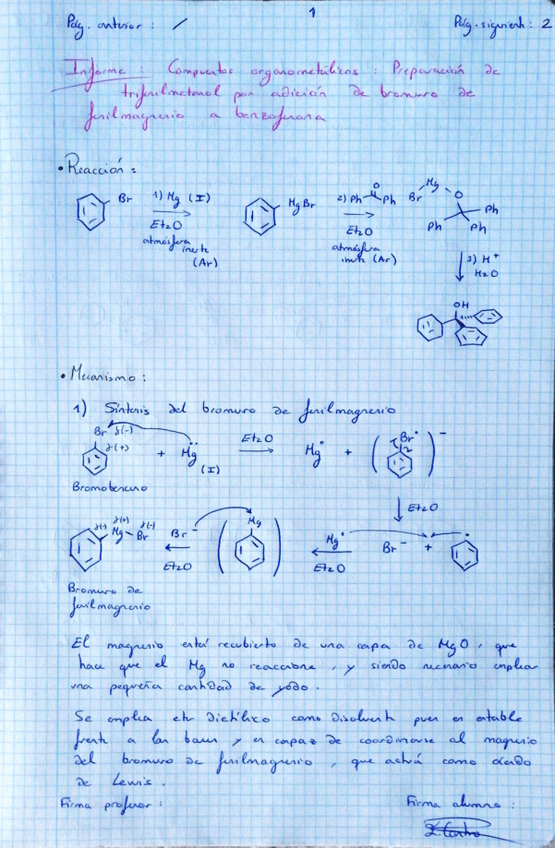 1
Pág. anterior: / Pág. siguiente: 2
Informe: Compuestos organometálicos: Preparación de
trifenilmetanol por adición de bromuro de
fenilmagnesio a benzofenona
• Reacción:
Br 1) Mg (I) MgBr 2) Ph O Ph Br Mg O
Et2O Et2O Ph Ph Ph
atmósfera inerte (Ar) atmósfera inerte (Ar)
3) H+
H2O
OH
• Mecanismo:
1) Síntesis del bromuro de fenilmagnesio
Br δ(-) δ(+) + Mg (I) Et2O Mg• + ( Br• ) −
Bromobenceno
Et2O
δ(-) δ(+) δ(-) Mg − Br Br− Et2O ( Mg ) Mg• Et2O Br− + •
Bromuro de
fenilmagnesio
El magnesio está recubierto de una capa de MgO, que
hace que el Mg no reaccione, y siendo necesario emplear
una pequeña cantidad de yodo.
Se emplea éter dietílico como disolvente pues es estable
frente a las bases y es capaz de coordinarse al magnesio
del bromuro de fenilmagnesio, que actúa como ácido
de Lewis.
Firma profesor: Firma alumno: